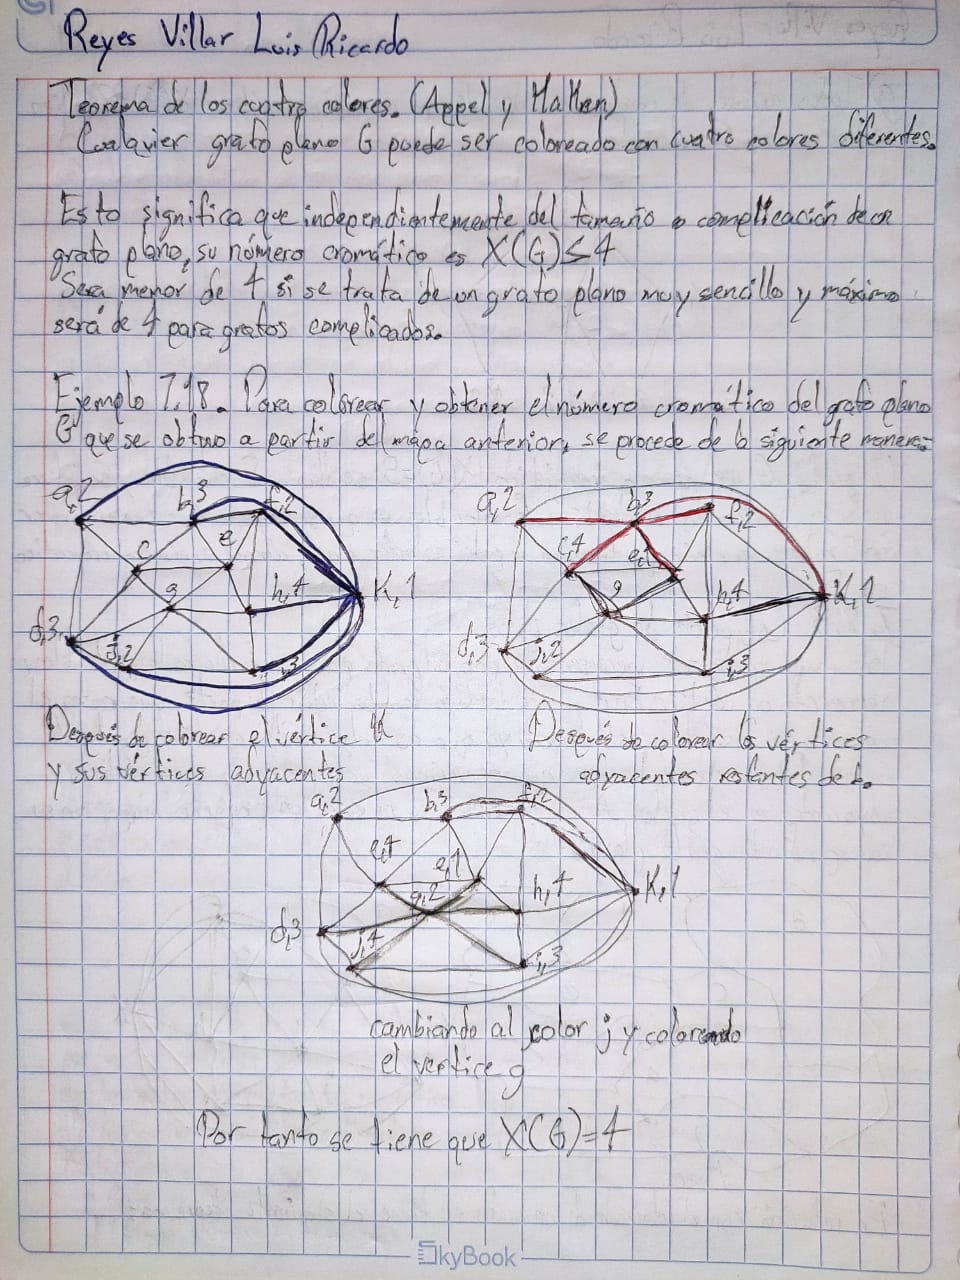 Reyes Villar Luis Ricardo
Teorema de los cuatro colores. (Appel y Haken)
Cualquier grafo plano G puede ser coloreado con cuatro colores diferentes.
Esto significa que independientemente del tamaño o complicación de un
grafo plano, su número cromático es X(G)≤4
Sera menor de 4 si se trata de un grafo plano muy sencillo y máximo
será de 4 para grafos complicados.
Ejemplo 7.18. Para colorear y obtener el número cromático del grafo plano
G que se obtuvo a partir del mapa anterior, se procede de la siguiente manera:
a,2 b,3 f,2
c e
g h,4 K,1
d,3 j,2 i,3
a,2 b,3 f,2
c,4 e,1
g h,4 K,1
d,3 j,2 i,3
Después de colorear el vértice K
y sus vértices adyacentes
Después de colorear los vértices
adyacentes restantes de b.
a,2 b,3 f,2
c,4 e,1
g,2 h,4 K,1
d,3 j,4 i,3
cambiando al color j y colorando
el vertice g
Por tanto se tiene que X(G)=4
SkyBook